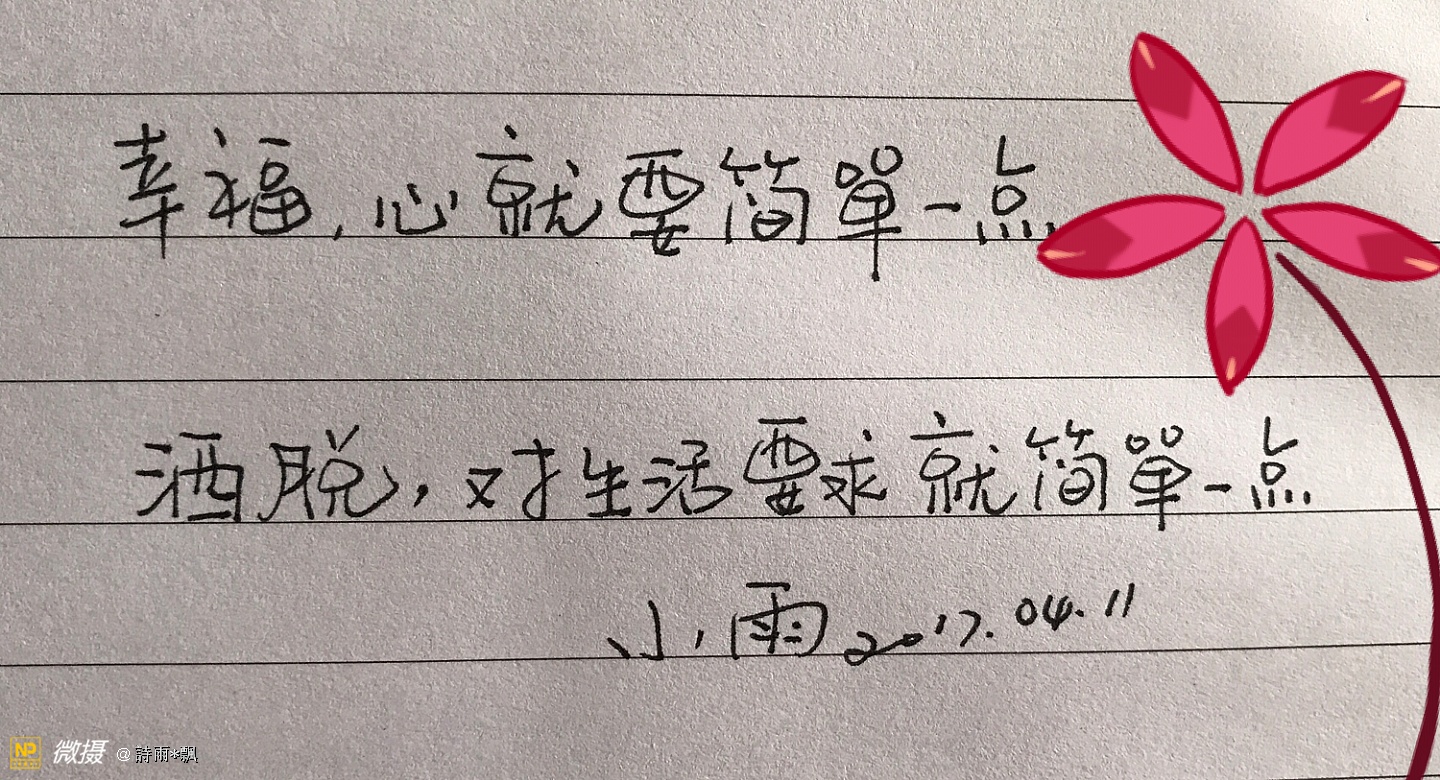 幸福,心就要简單一点
洒脱,对生活要求就简單一点
小雨 2017.04.11
NP 微摄 @詩雨*飘